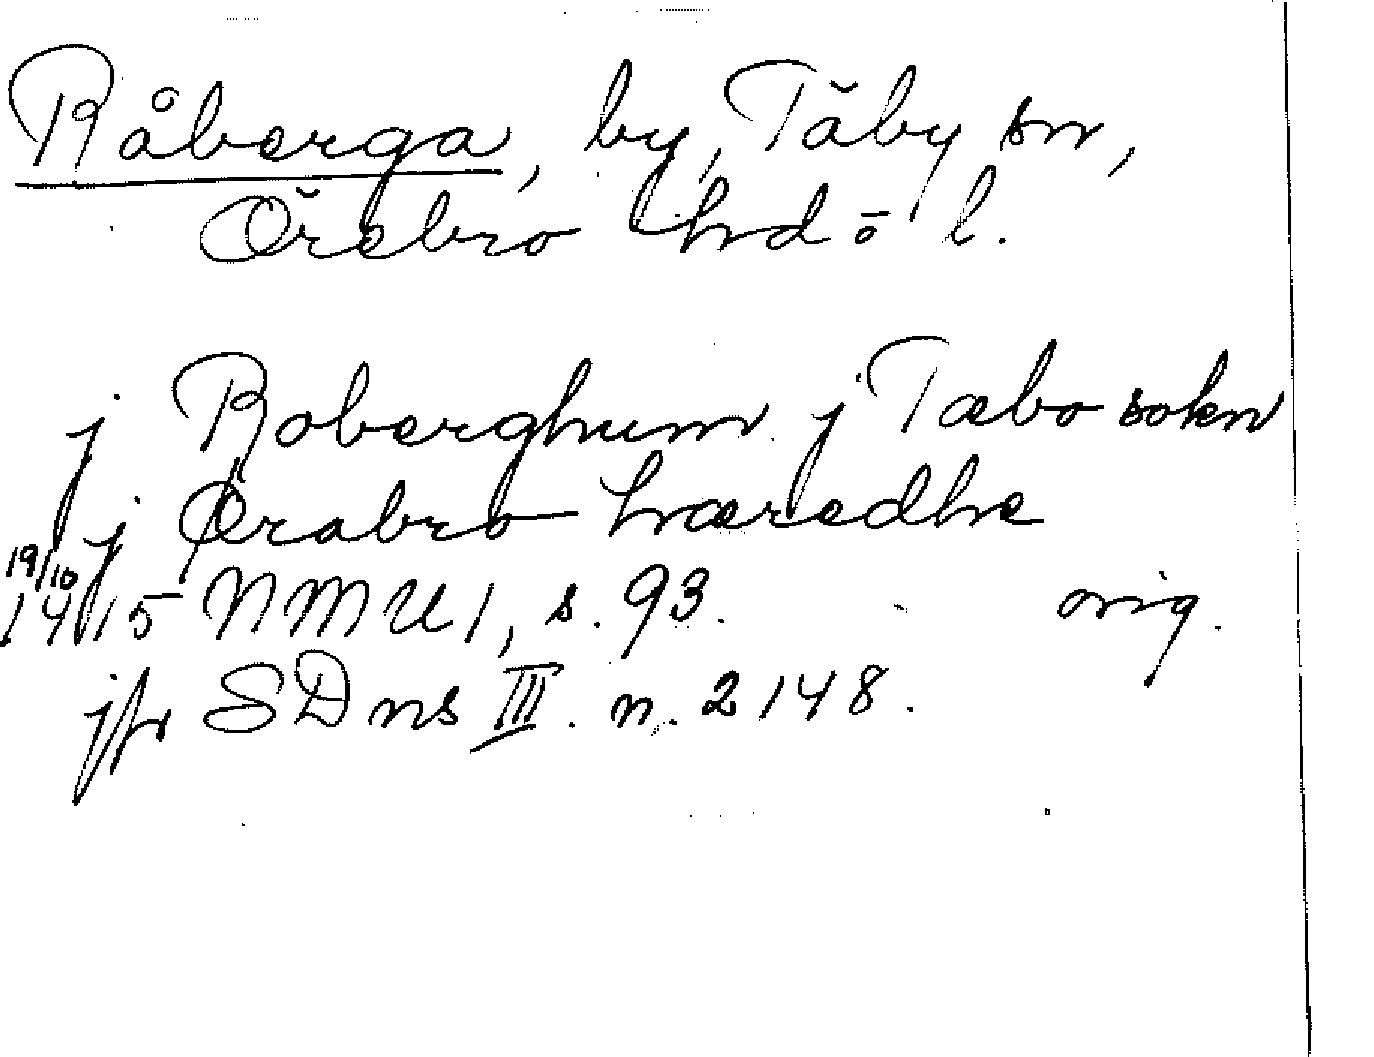 Råberga, by, Täby sn,
Örebro hd o l.
j Roberghum j Tæbo sokn
j Ørabro hæredhe
19/10 1415 NMU 1, s. 93. orig.
jfr SD ns III. n. 2148.